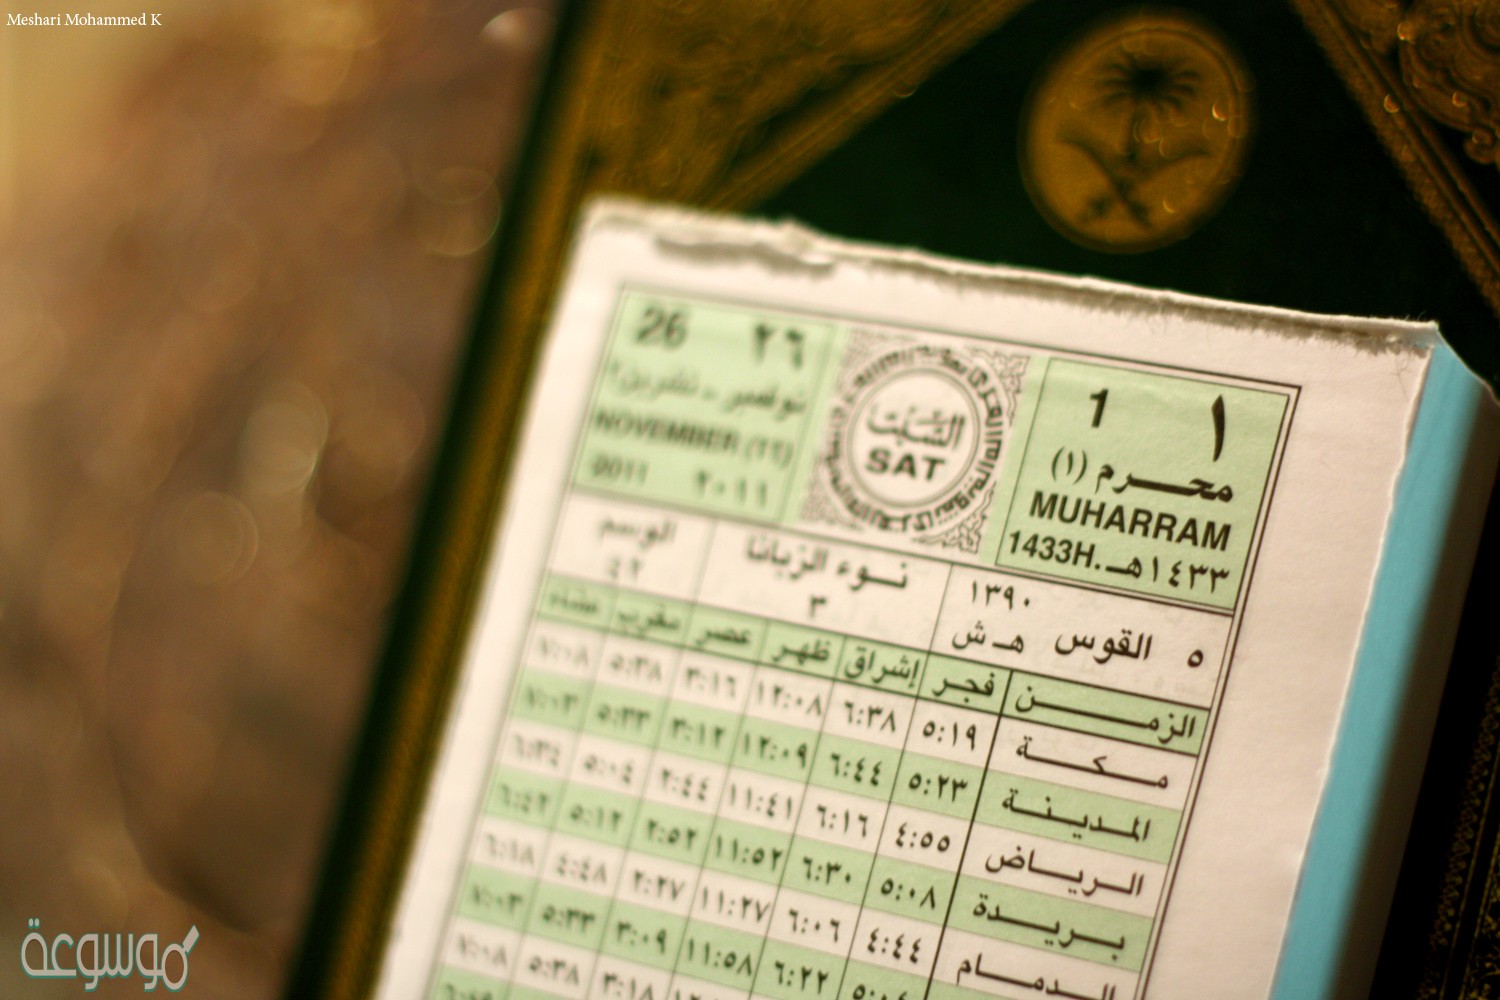 Meshari Mohammed K
١ 1
محرم (١)
MUHARRAM
1433H. ١٤٣٣هـ
السبت
SAT
26 ٢٦
نوفمبر - تشرين٢
NOVEMBER (١١)
2011 ٢٠١١
٥ القوس ١٣٩٠ هـ ش
نوء الزبانا
٣
الوسم
٤٢
الزمن فجر إشراق ظهر عصر مغرب عشاء
مكة ٥:١٩ ٦:٣٨ ١٢:٠٨ ٣:١٦ ٥:٣٨ ٧:٠٨
المدينة ٥:٢٣ ٦:٤٤ ١٢:٠٩ ٣:١٢ ٥:٣٣ ٧:٠٣
الرياض ٤:٥٥ ٦:١٦ ١١:٤١ ٢:٤٤ ٥:٠٤ ٦:٣٤
بريدة ٥:٠٨ ٦:٣٠ ١١:٥٢ ٢:٥٢ ٥:١٢ ٦:٤٢
الدمام ٤:٤٤ ٦:٠٦ ١١:٢٧ ٢:٢٧ ٤:٤٨ ٦:١٨
٦:٢٢ ١١:٥٨ ٣:٠٩ ٥:٣٣ ٧:٠٣
٣:١٨ ٥:٣٨ ٧:٠٨
موسوعة